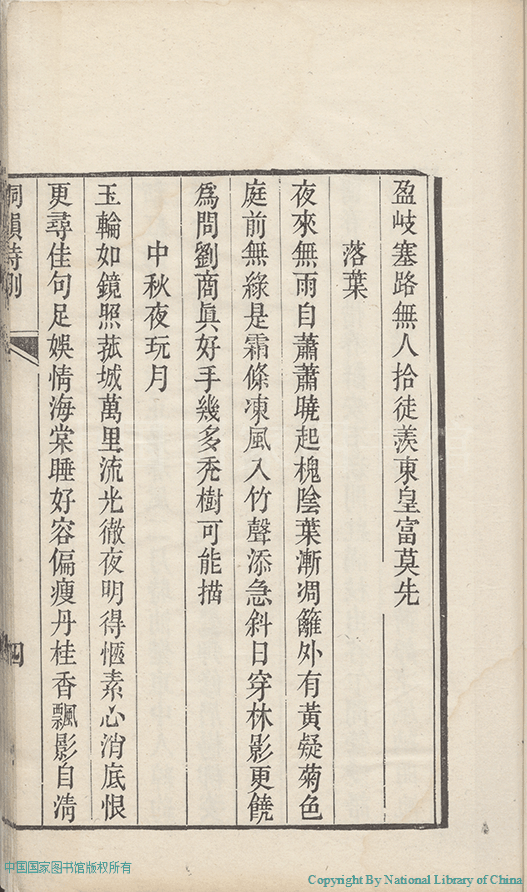 盈岐塞路無人拾徒羨東皇富莫先
落葉
夜來無雨自蕭蕭曉起槐陰葉漸凋籬外有黃疑菊色
庭前無綠是霜條凍風入竹聲添急斜日穿林影更饒
爲問劉商眞好手幾多禿樹可能描
中秋夜玩月
玉輪如鏡照菰城萬里流光徹夜明得愜素心消底恨
更尋佳句足娛情海棠睡好容偏瘦丹桂香飄影自淸
韻詩 四
中国国家图书馆版权所有
Copyright By National Library of China